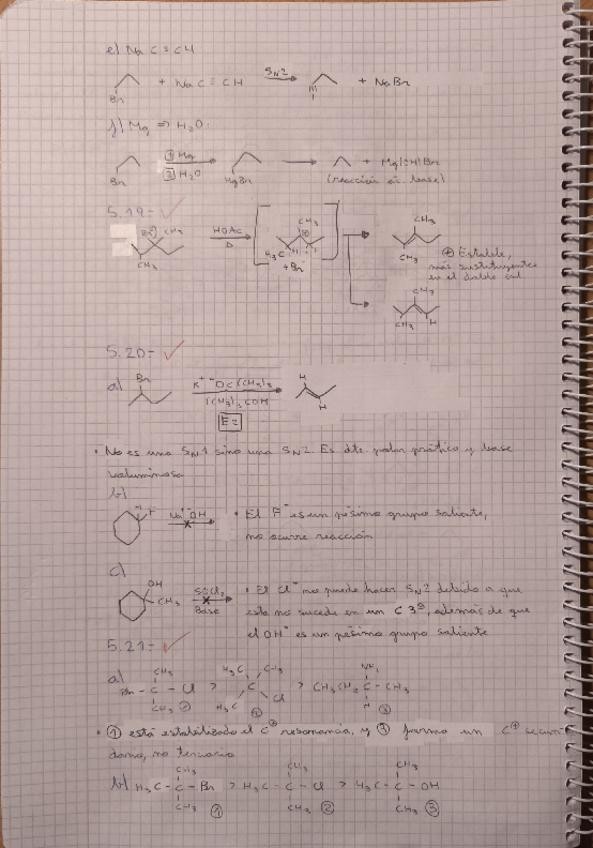 e) Na C≡CH
+ Na C≡CH SN2 + NaBr
Br
f) Mg ⇒ H2O
① Mg
② H2O + Mg(OH)Br
Br MgBr (reacción ác. base)
5.19-
Br CH3 HOAc Δ CH3 ⊕ CH3
CH3 H3C H + Br CH3
⊕ Estable,
más sustituyentes
en el doble enl
CH3
CH3 H
5.20-
a) Br K+ -OC(CH3)3 H
(CH3)3COH H
E2
• No es una SN1 sino una SN2. Es dte. polar prótico y base
voluminosa
b)
F Na+ -OH • El F- es un pésimo grupo saliente,
no ocurre reacción
c)
OH
CH3 SOCl2 • El Cl- no puede hacer SN2 debido a que
Base esto no sucede en un C3º, además de que
el OH- es un pésimo grupo saliente
5.21-
a) CH3 H3C CH3
C - Cl > C > CH3CH2 C - CH3
CH3 ② H3C Cl ① H ③
• ① está estabilizado el C⊕ resonancia, y ③ forma un C⊕ secun
dario, no terciario
b) CH3 CH3 CH3
H3C - C - Br > H3C - C - Cl > H3C - C - OH
CH3 ① CH3 ② CH3 ③